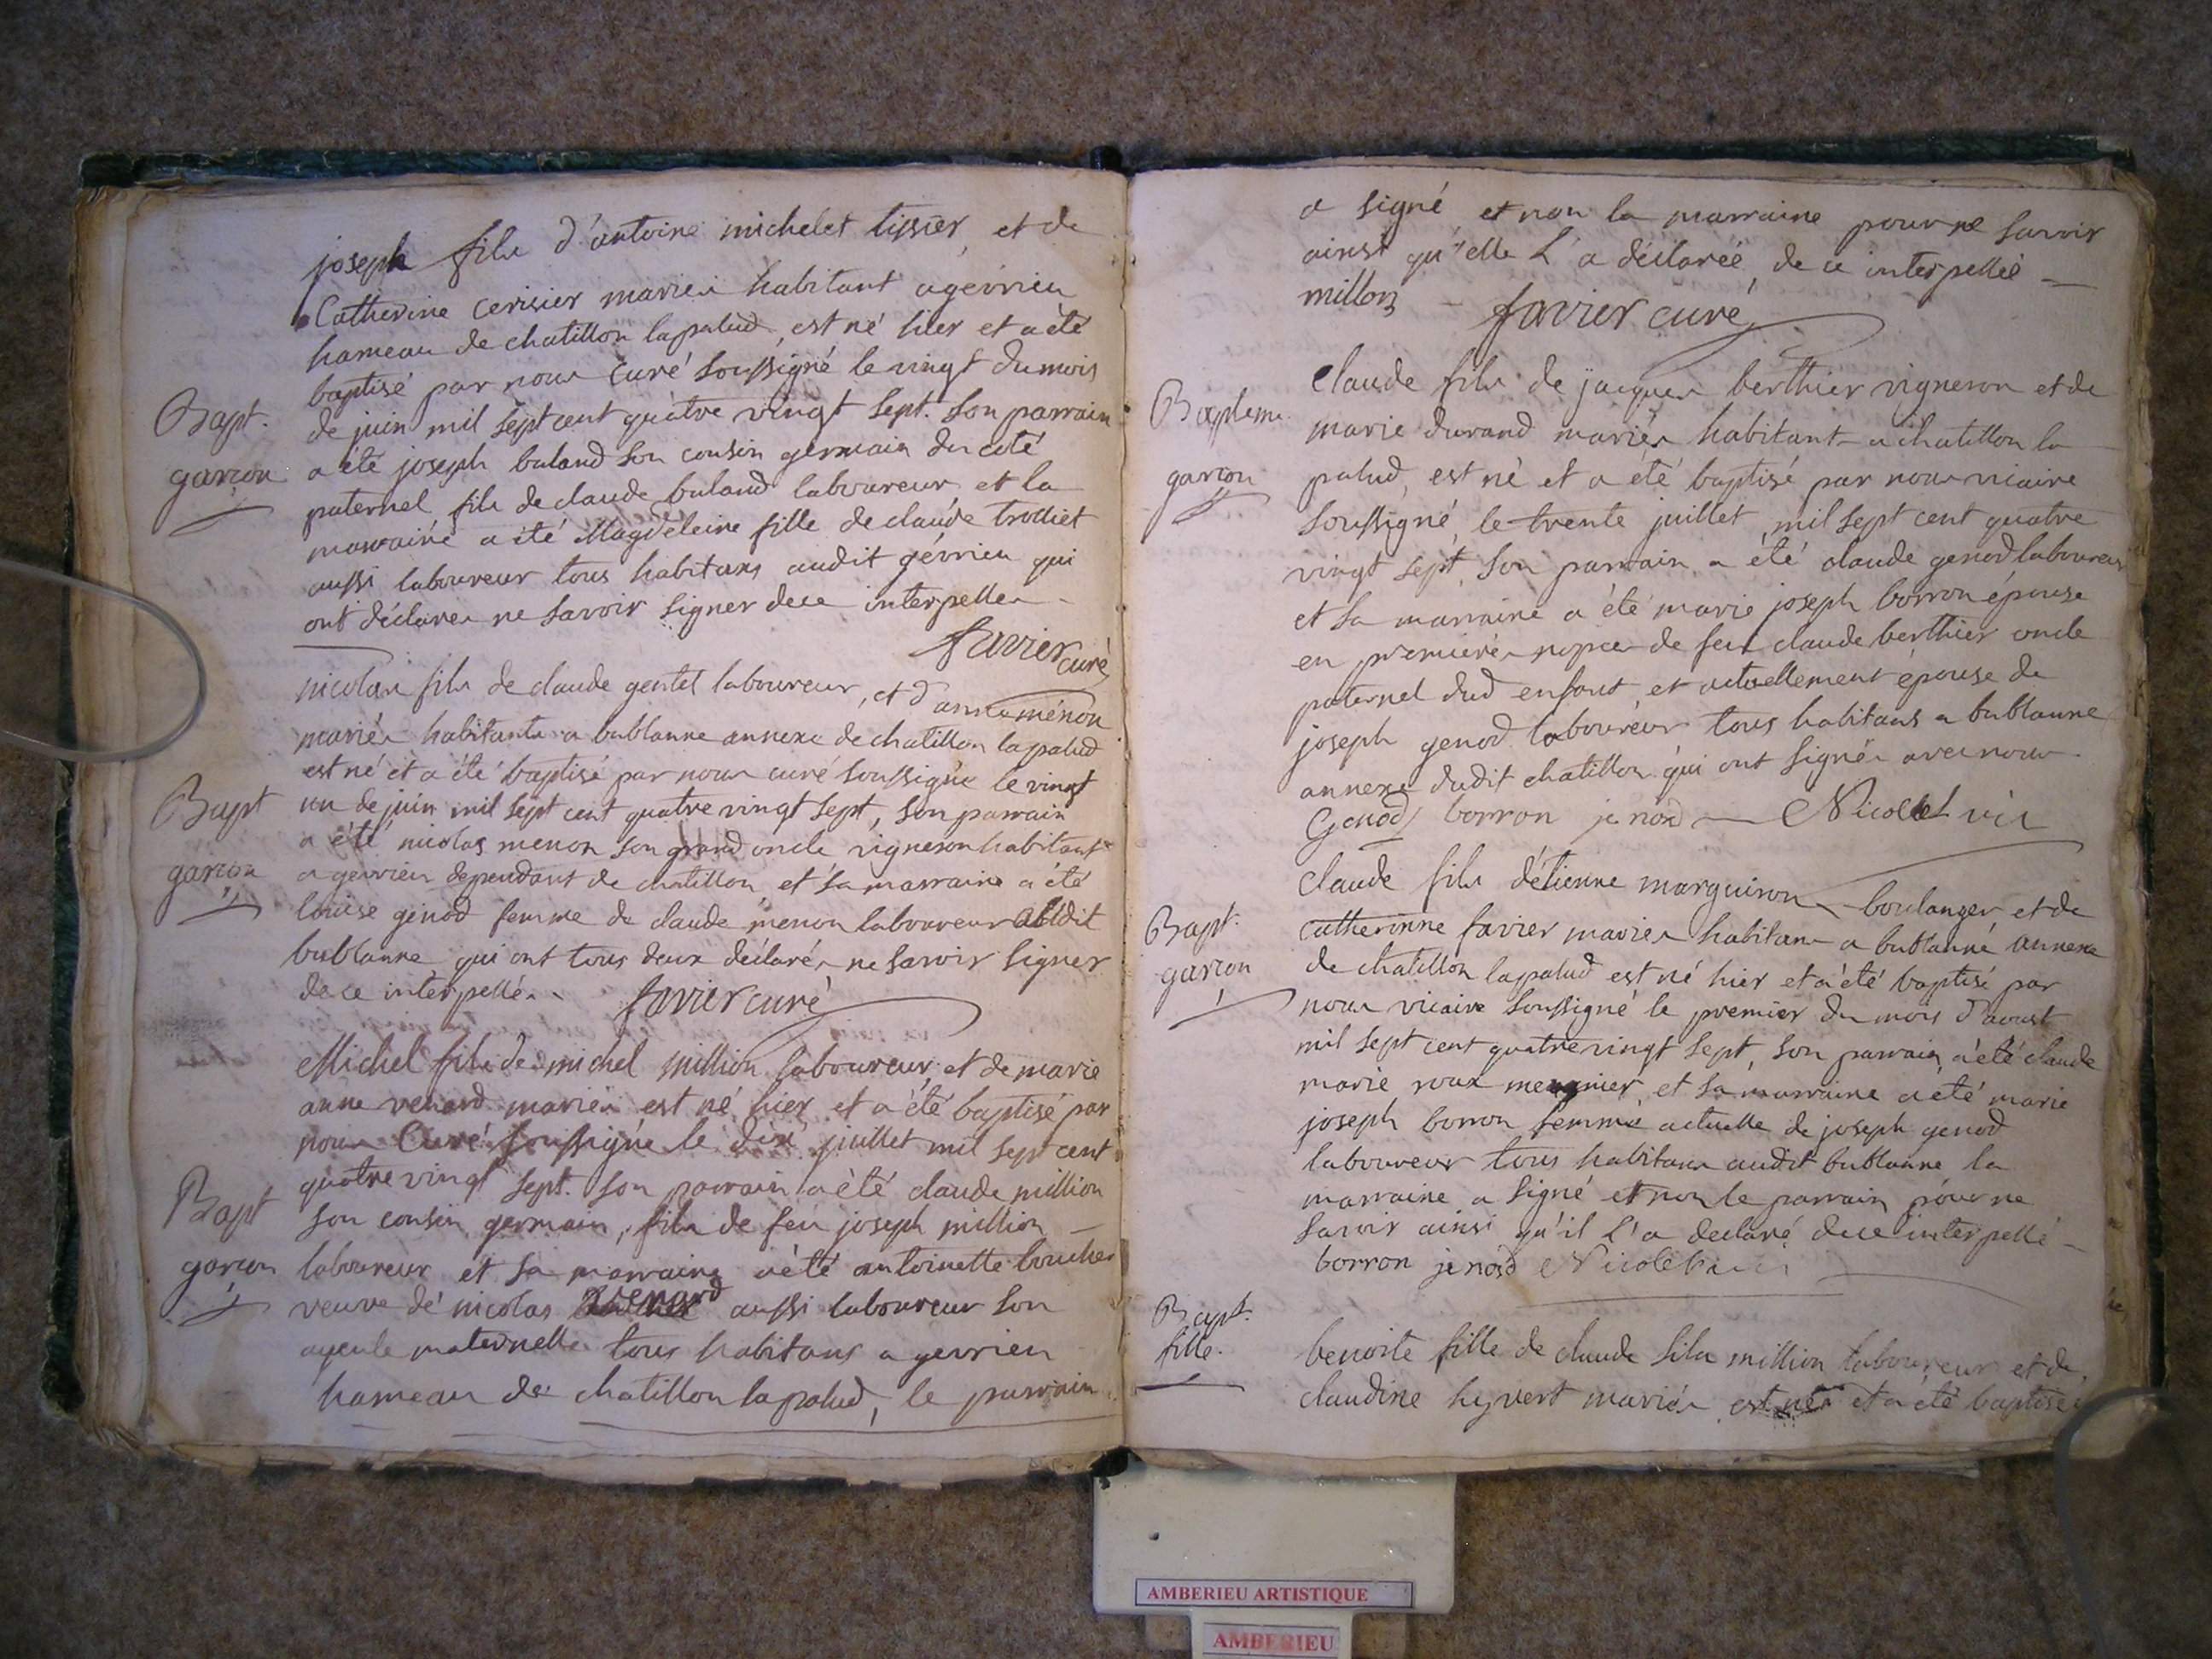 joseph fils d'antoine michelet tissier, et de
Catherine cerisier mariés habitant a gévrieu
hameau de chatillon lapalud, est né hier et a été
baptisé par nous curé soussigné le vingt du mois
Bapt.
garcon
de juin mil sept cent quatre vingt sept. son parrain
a été joseph buland son cousin germain du coté
paternel fils de claude buland laboureur, et la
marraine a été Magdeleine fille de claude trolliet
aussi laboureur tous habitans audit gévrieu qui
ont déclarés ne savoir signer de ce interpellés
favier curé
nicolas fils de claude gentet laboureur, et d'anne ménon
mariés habitants a bublanne annexe de chatillon lapalud
est né et a été baptisé par nous curé soussigné le vingt
Bapt
garcon
un de juin mil sept cent quatre vingt sept, son parrain
a été nicolas menon son grand oncle vigneron habitant
a gevrieu dependant de chatillon et sa marraine a été
louise génod femme de claude menon laboureur audit
bublanne qui ont tous deux déclarés ne savoir signer
de ce interpellés favier curé
Michel fils de michel million laboureur, et de marie
anne venard mariés est né hier et a été baptisé par
nous Curé soussigné le dix juillet mil sept cent
Bapt
garcon
quatre vingt sept. son parrain a été claude million
son cousin germain, fils de feu joseph million
laboureur et sa marraine a été antoinette boucher
veuve de nicolas venard aussi laboureur son
ayeule maternelle tous habitans a gevrieu
hameau de chatillon lapalud, le parrain
a signé et non la marraine pour ne savoir
ainsi qu'elle l'a déclarée de ce interpellée
millon favier curé
Bapteme
garcon
claude fils de jacques berthier vigneron et de
marie durand mariés habitant a chatillon la
palud, est né et a été baptisé par nous vicaire
soussigné le trente juillet mil sept cent quatre
vingt sept, son parrain a été claude genod laboureur
et sa marraine a été marie joseph borron épouse
en premières nopces de feu claude berthier oncle
paternel dud enfant et actuellement épouse de
joseph genod laboureur tous habitans a bublanne
annexe dudit chatillon qui ont signés avec nous
Genod borron jenod Nicollet vic
Bapt.
garcon
claude fils d'étienne marguiron boulanger et de
catherinne favier mariés habitans a bublanne annexe
de chatillon lapalud est né hier et a été baptisé par
nous vicaire soussigné le premier du mois d'aoust
mil sept cent quatre vingt sept, son parrain a été claude
marie roux meunier, et sa marraine a été marie
joseph borron femme actuelle de joseph genod
laboureur tous habitans audit bublanne la
marraine a signé et non le parrain pour ne
savoir ainsi qu'il l'a declaré de ce interpellé
borron jenod
Bapt.
fille.
benoite fille de claude fils million laboureur et de
claudine hyvert mariés est née et a été baptisée
AMBERIEU ARTISTIQUE
AMBERIEU